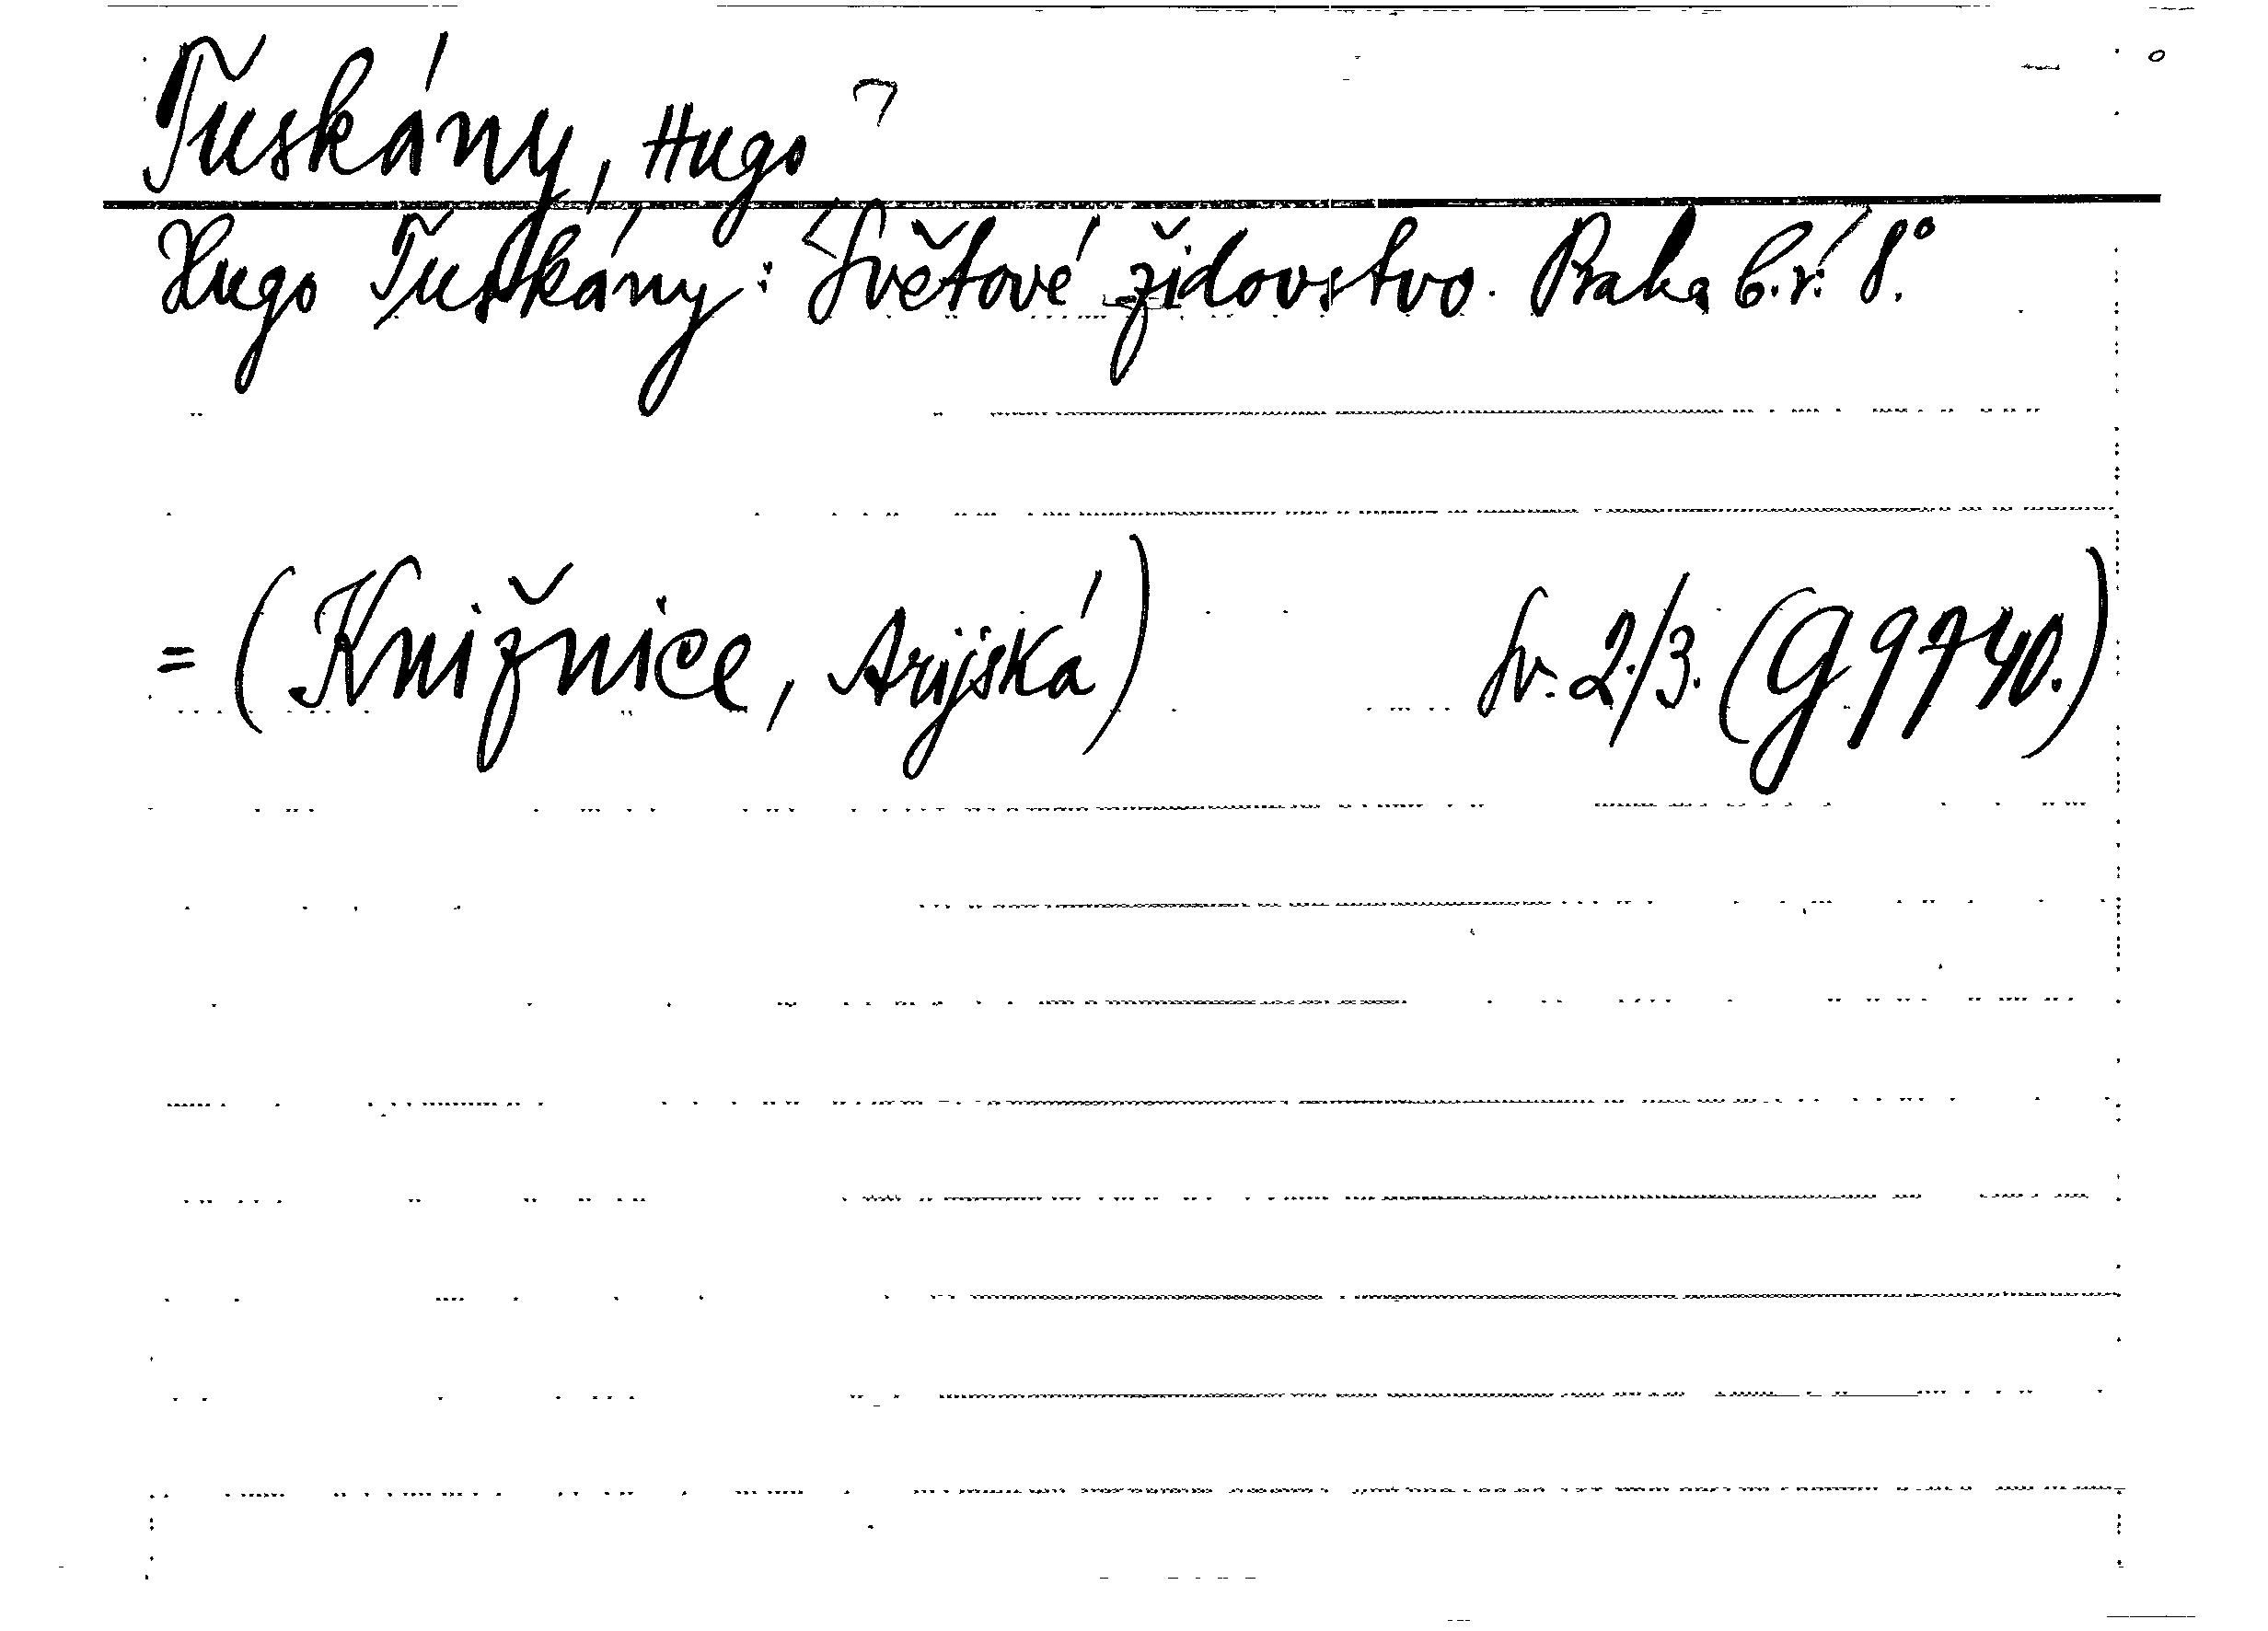 Tuskány, Hugo
Hugo Tuskány: Světové židovstvo. Praha b.r. 8.°
= (Knižnice, Arijská) Sv. 2./3. (G 9740.)